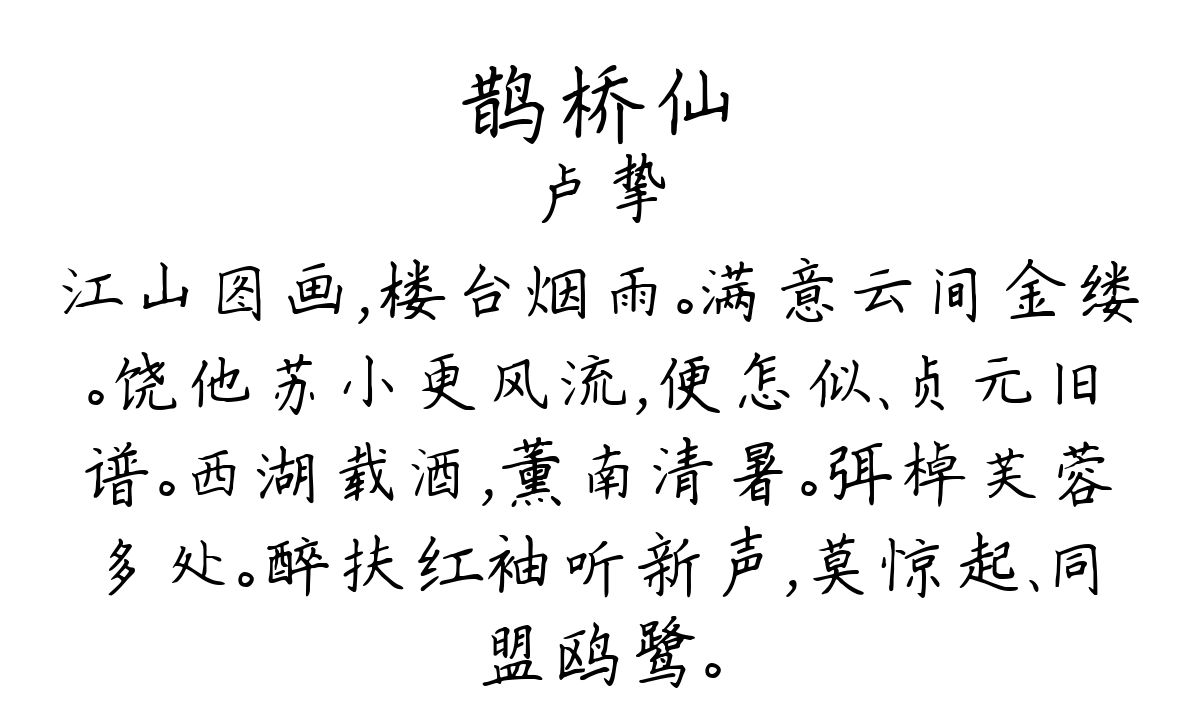 鹊桥仙
卢挚
江山图画,楼台烟雨。满意云间金缕
。饶他苏小更风流,便怎似、贞元旧
谱。西湖载酒,薰南清暑。弭棹芙蓉
多处。醉扶红袖听新声,莫惊起、同
盟鸥鹭。